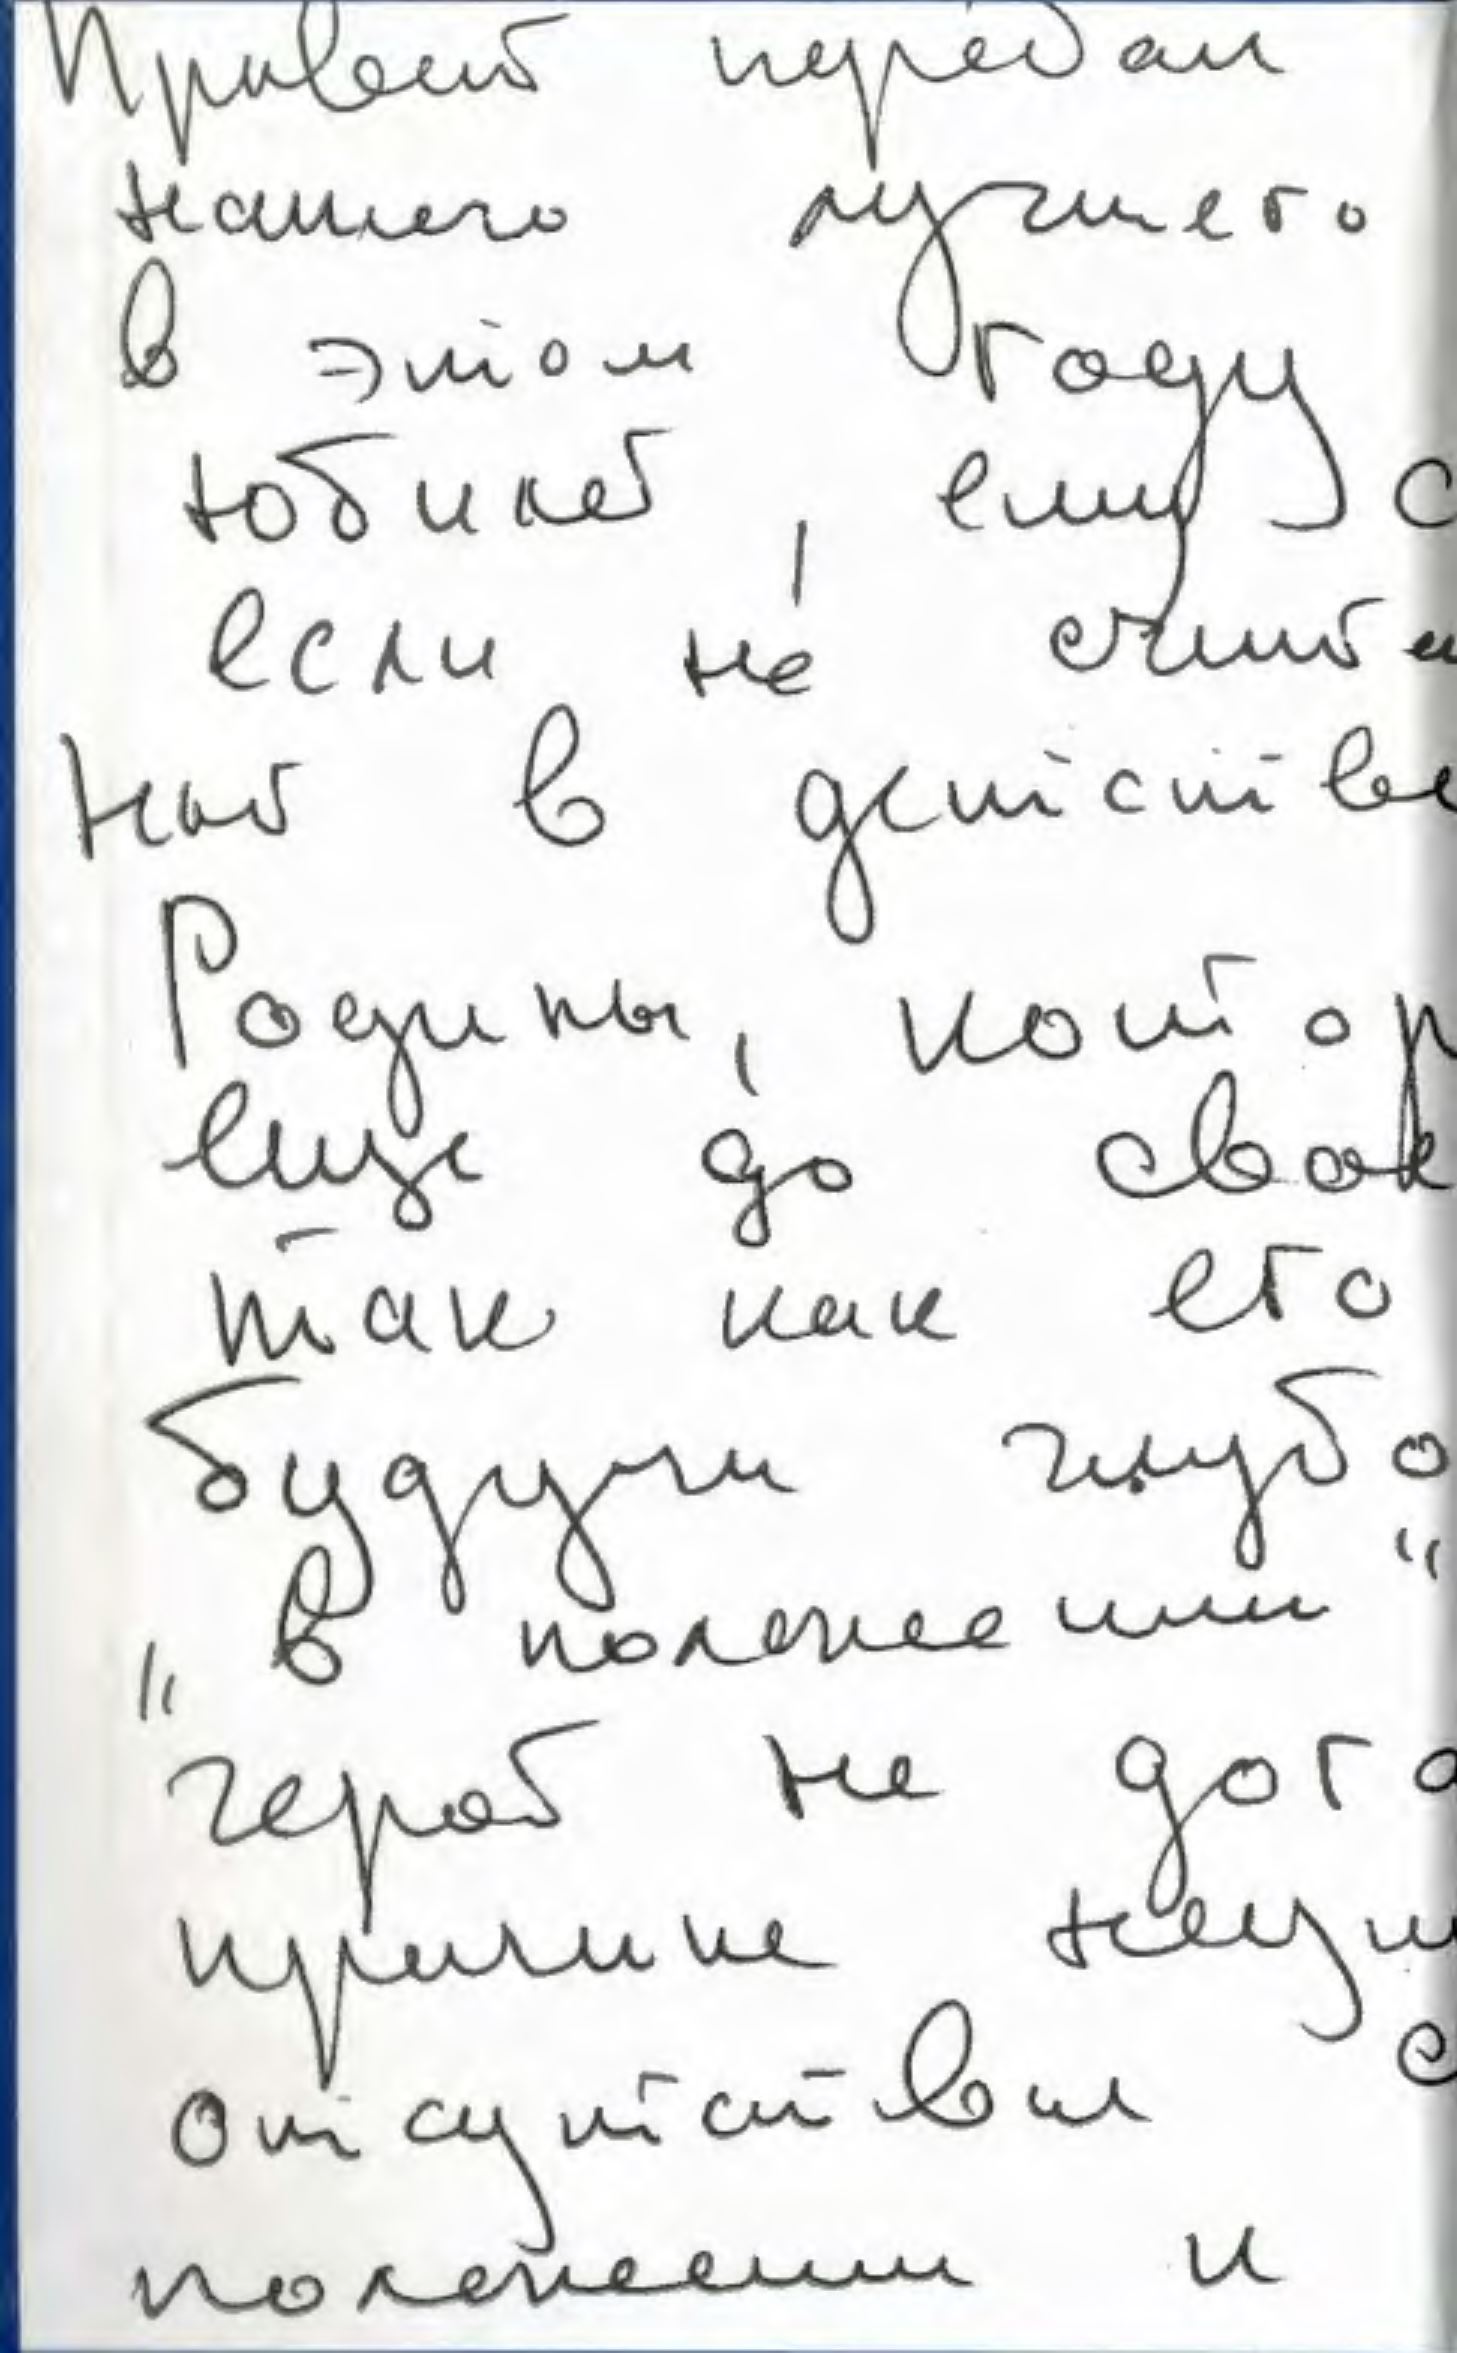 Привет передал
нашего лучшего
в этом году
юбилей, ему с
если не счита
ной в детстве
Родины, котор
еще до свое
так как его
будучи глубо
„в положении“
герой не дога
причине неум
отсутствии с
положении и